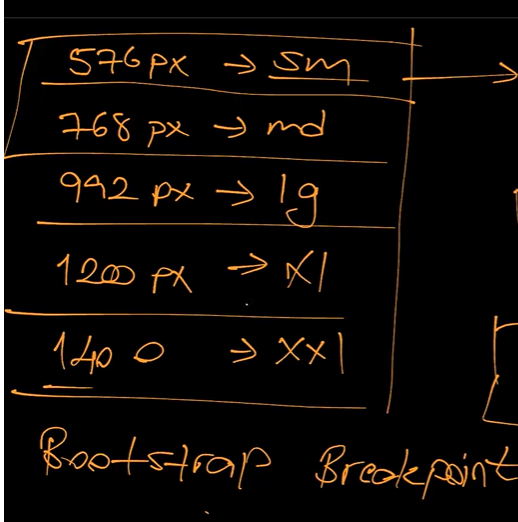 576px → sm
768 px → md
992 px → lg
1200 px → xl
1400 → xxl
Bootstrap Breakpoint